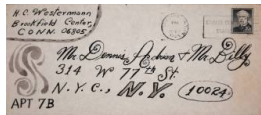 H.C. Westermann
Brookfield Center,
CONN. 06805
Mr. Dennis Adrian & Mr. Billy
314 W 77th St.
N.Y.C., N.Y. 10024
APT 7B